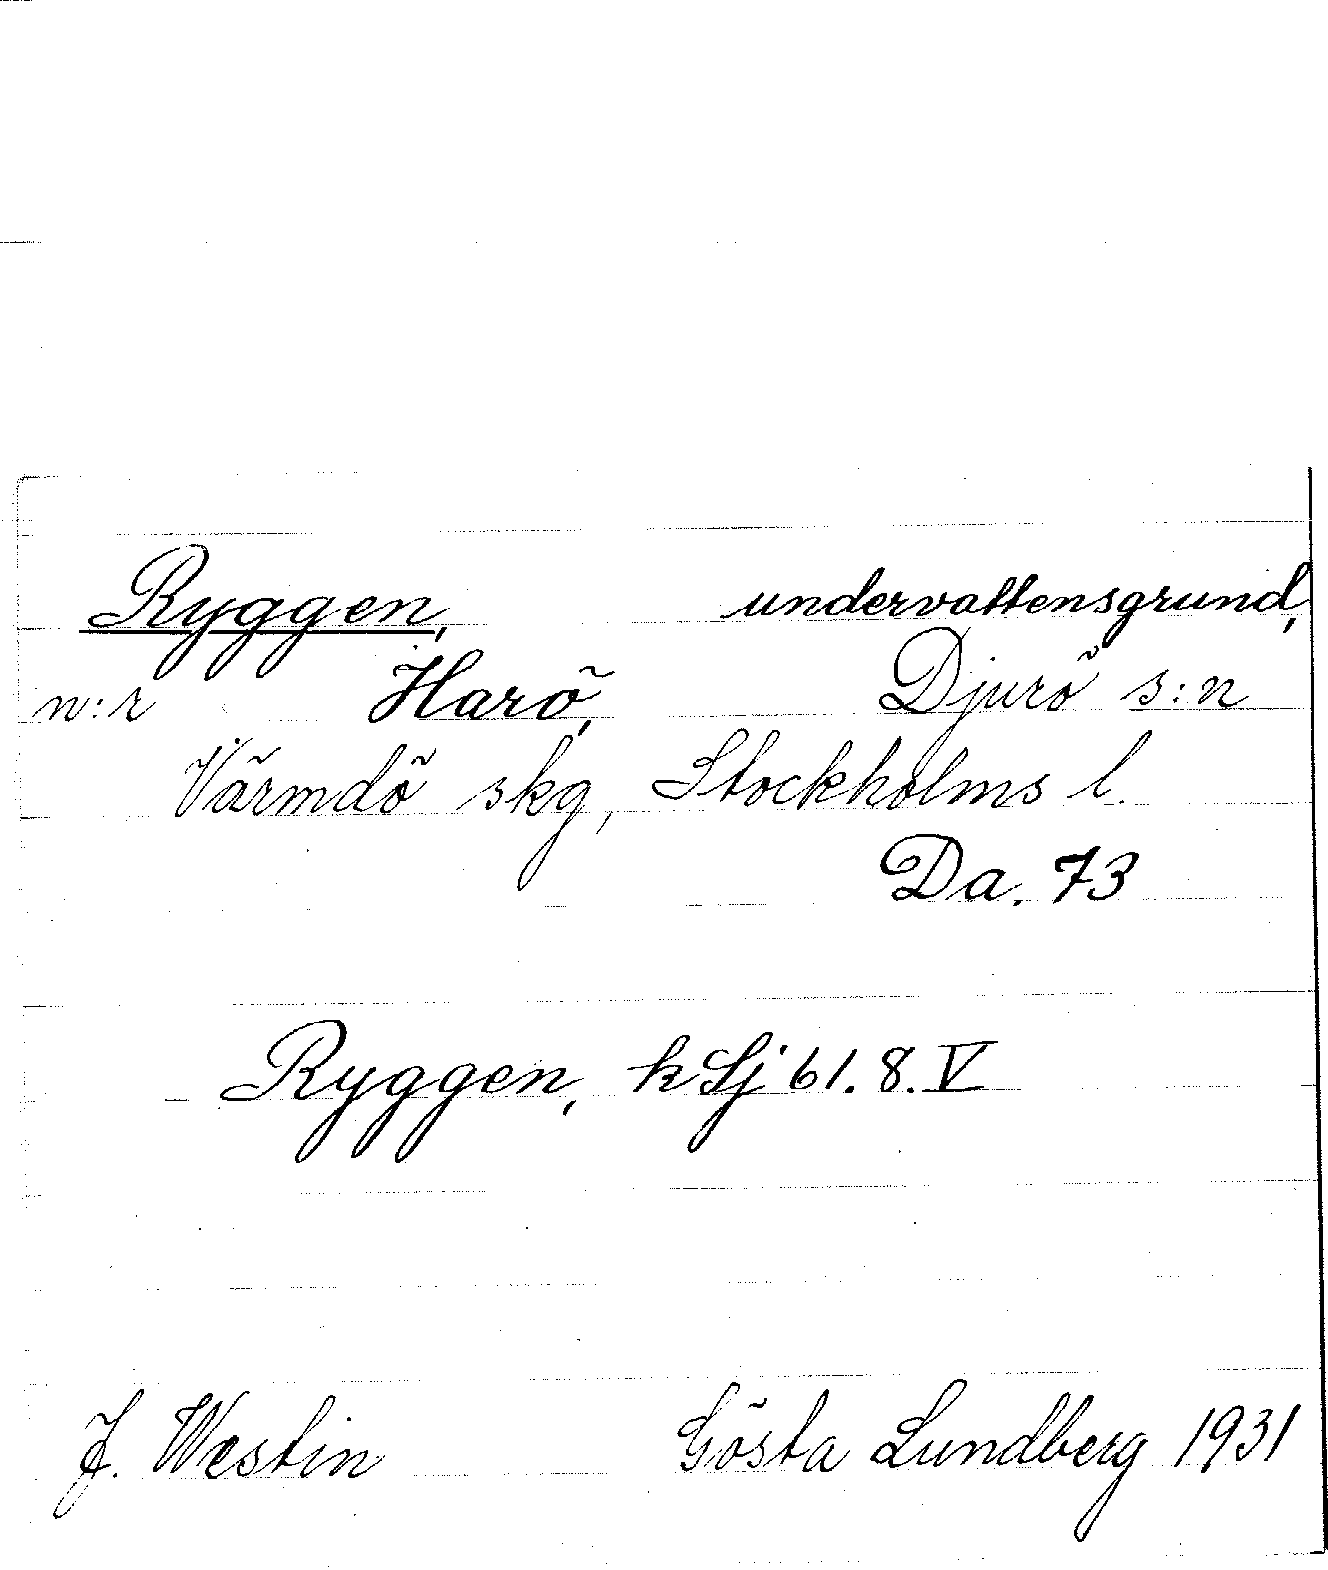 Ryggen, undervattensgrund,
n:r Harö, Djurö s:n
Värmdö skg, Stockholms l.
Da. 73
Ryggen, k Sj 61. 8. V
J. Westin Gösta Lundberg 1931